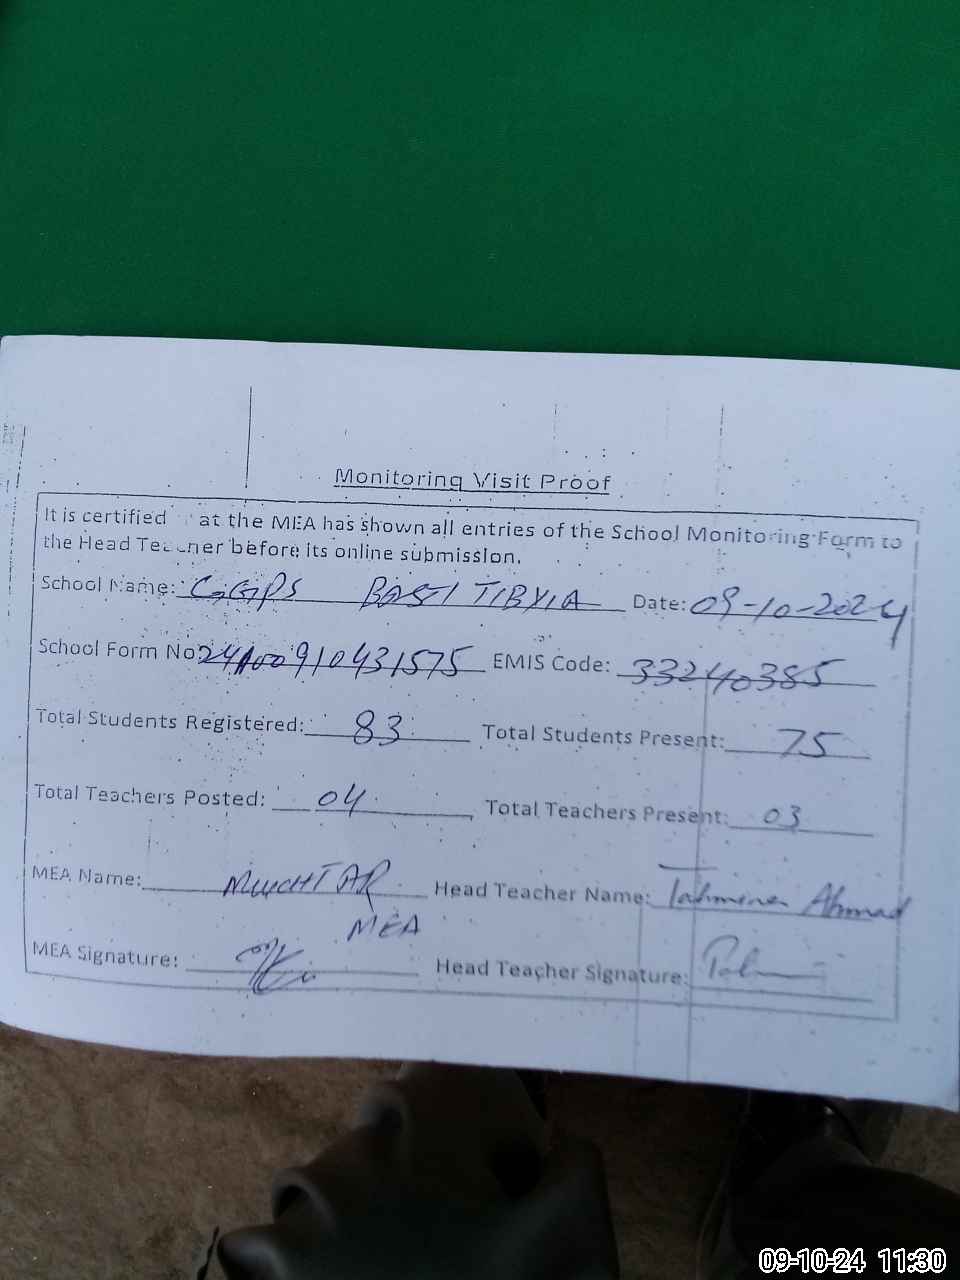 Monitoring Visit Proof
It is certified at the MEA has shown all entries of the School Monitoring Form to
the Head Teacher before its online submission.
School Name: GGPS BASTI TIBYIA Date: 09-10-2024
School Form No 910431575 EMIS Code: 33240385
Total Students Registered: 83 Total Students Present: 75
Total Teachers Posted: 04 Total Teachers Present: 03
MEA Name: MUCHTAR Head Teacher Name: Tahmina Ahmad
MEA
MEA Signature: Head Teacher Signature:
09-10-24 11:30